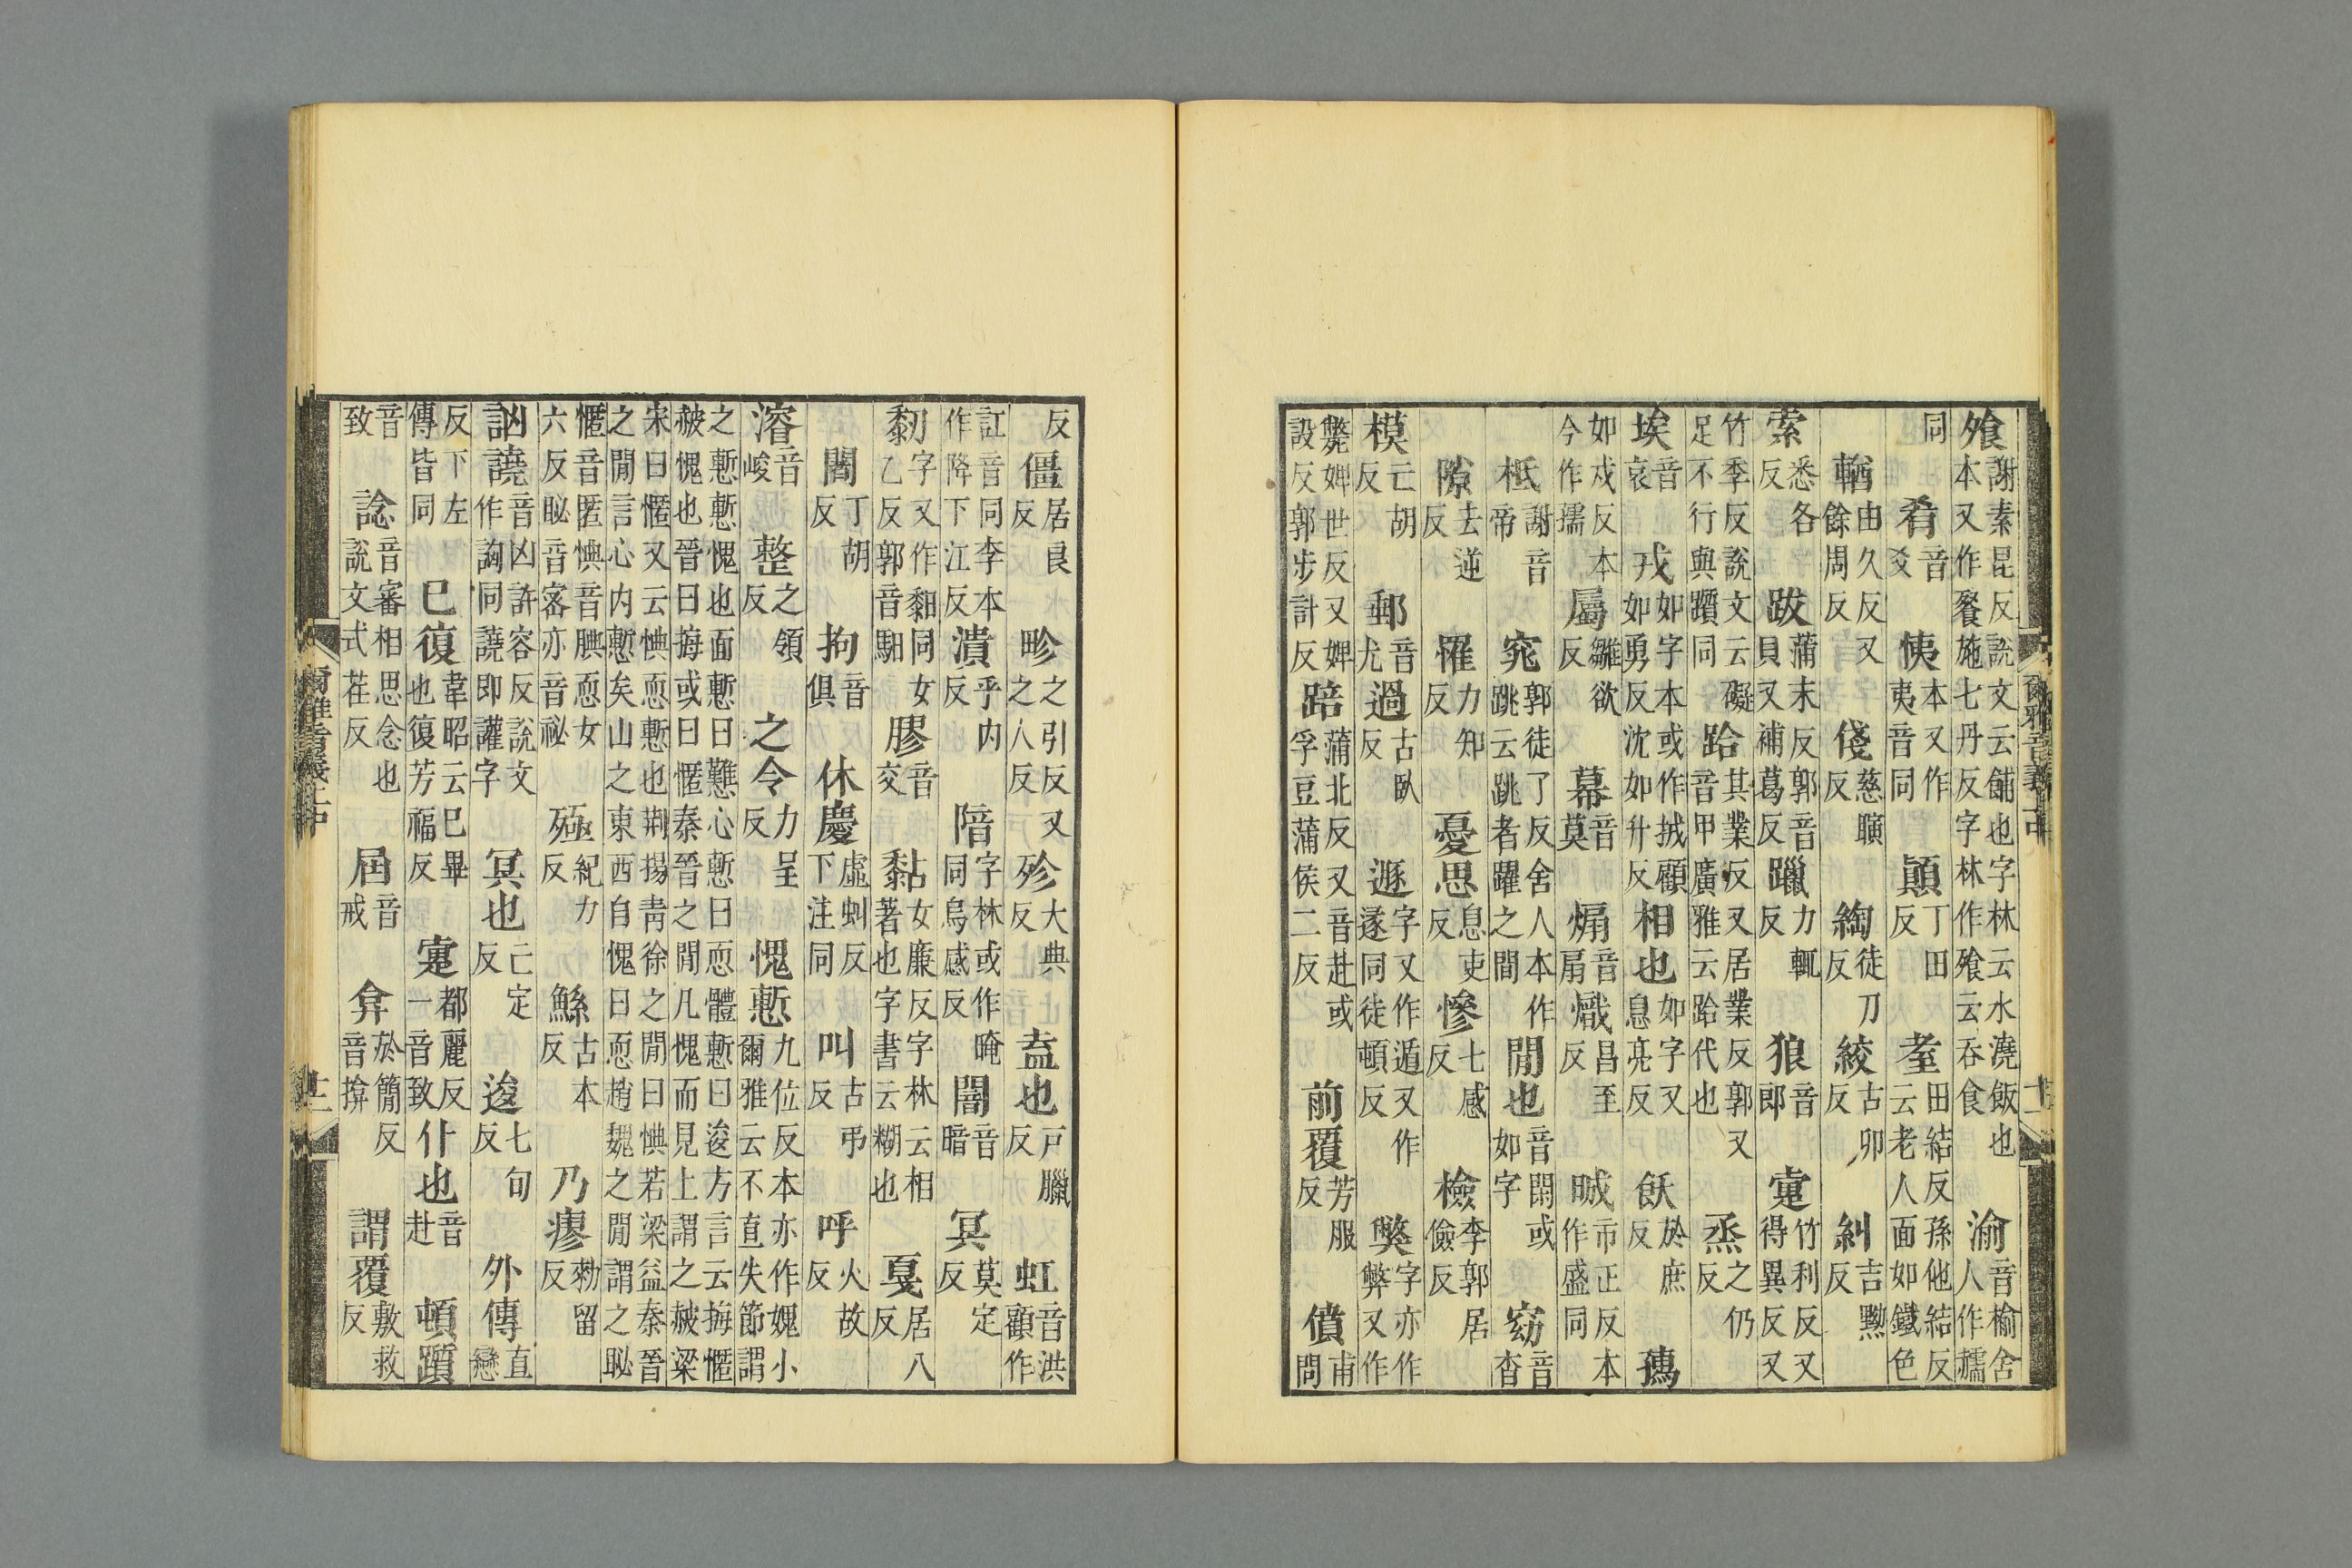 飧謝素昆反說文云餔也字林云水澆飯也本又作飱施七丹反字林作飱云吞食 渝音榆舍人作䄖
同 肴音爻 侇本又作夷音同 顛丁田反 耋田結反孫他結反云老人面如鐵色
輶由久反又餘周反 俴慈䐮反 綯徒刀反 絞古卯反 糾吉黝反
索悉各反 跋蒲末反郭音貝又補葛反 躐力輒反 狼音郎 疐竹利反又得異反又
竹季反說文云礙足不行與躓同 跲其業反又居業反郭又音甲廣雅云跲代也 烝之仍反
埃音哀 戎如字本或作拭顧如勇反沈如升反 相也如字又息亮反 飫於庶反 孺
如戍反本今作孺 屬雛欲反 幕音莫 煽音扇 熾昌至反 晠市正反本作盛同
柢謝音帝 窕郭徒了反舍人本作跳云跳者躍之間 閒也音閑或如字 窈音杳
隙去逆反 罹力知反 憂思息吏反 慘七感反 檢李郭居儉反
模亡胡反 郵音尤 過古臥反 遯字又作遁又作遂同徒頓反 獘字亦作弊又作
斃婢世反又婢設反郭步計反 踣蒲北反又音赴或孚豆蒲侯二反 前覆芳服反 僨甫問
反 僵居良反 畛之引反又之人反 殄大典反 盍也戶臘反 虹音洪顧作
訌音同李本作降下江反 潰乎内反 陪字林或作晻同烏感反 闇音暗 冥莫定反
䵑字又作䵒同女乙反郭音馹 膠音交 黏女廉反字林云相著也字書云糊也 戛居八反
闍丁胡反 拘音俱 休慶虛虯反下注同 叫古弔反 呼火故反
濬音峻 整之領反 之令力呈反 愧慙九位反本亦作媿小爾雅云不直失節謂
之慙慙愧也面慙曰戁心慙曰恧體慙曰逡方言云挴㥾赧愧也晉曰挴或曰㥾秦晉之閒凡愧而見上謂之赧梁
宋曰㥾又云㤿恧慙也荆揚青徐之閒曰㤿若梁益秦晉之閒言心内慙矣山之東西自愧曰恧趙魏之閒謂之䀣
㥾音匿㤿音腆恧女六反䀣音密亦音祕 殛紀力反 鯀古本反 乃瘳勑留反
訩譊音凶許容反說文作訩同譊即讙字 冥也亡定反 逡七旬反 外傳直戀
反下左傳皆同 已復韋昭云已畢也復芳福反 疐都麗反一音致 仆也音赴 頓躓
音致 諗音審相思念也說文式荏反 屆音戒 弇於簡反音揜 謂覆敷救反
爾雅音義上中
十二
爾雅音義上中
十三